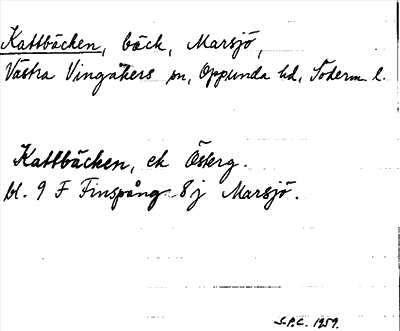 Kattbäcken, bäck, Marsjö,
Västra Vingåkers sn, Oppunda hd, Söderm. l.
Kattbäcken, ek Österg.
bl. 9 F Finspång 8 j Marsjö.
S.P.C. 1959.